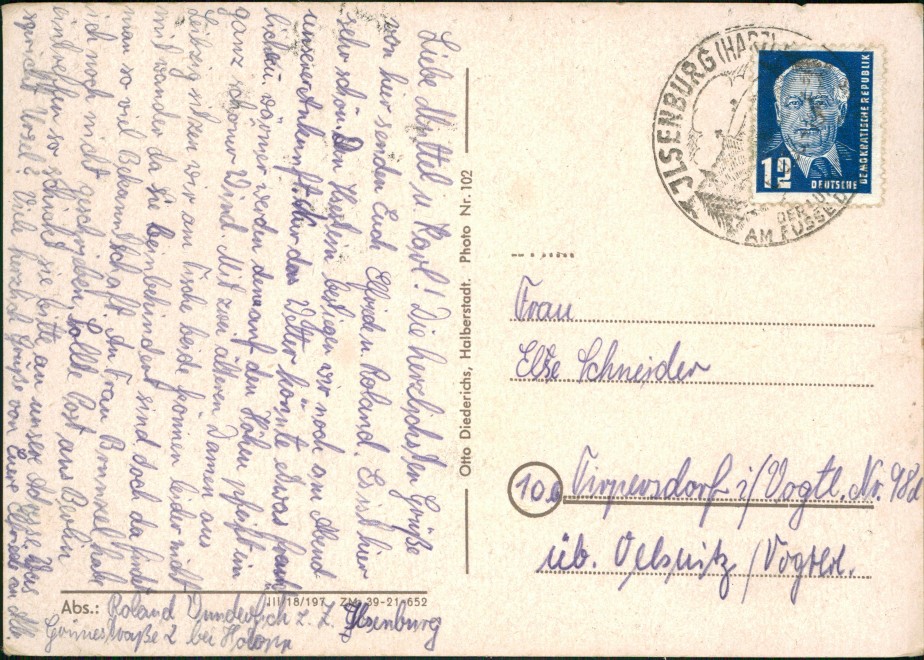 Liebe Mutter u. Karl! Die herzlichsten Grüße
von hier senden Euch Elfried u. Roland. Es ist hier
sehr schön. Den Ilsestein bestigen wir noch am Abend
unserer Ankunft. Nur das Wetter konnte etwas
wärmer werden denn auf den Höhen pfeift ein
ganz schöner Wind. Mit zwei älteren Damen aus
Leipzig sitzen wir am Tische beide können leider nicht
mit wandern da sie beinbehindert sind, doch da findet
man so viel Bekanntschaft. An Frau habe
ich noch nicht geschrieben. Sollte Post aus Berlin
eintreffen so schickt sie bitte an unsere Adresse. Was
spricht Ursel? Viele herzl. Grüße von Eure
Abs.: Roland Wunderlich z. Z. Ilsenburg
2 bei
III/18/197 ZM 39-21 652
Otto Diederichs, Halberstadt. Photo Nr. 102
ILSENBURG (HARZ)
DER LU
AM FUSSE D
12
DEUTSCHE
DEMOKRATISCHE REPUBLIK
Frau
Else Schneider
10a Tirpersdorf i/Vogtl. Nr. 98b
üb. Oelsnitz /Vogtld.